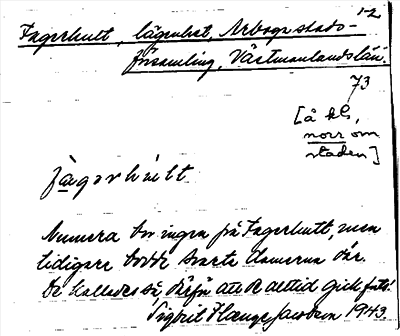 1-2
Fagerhult, lägenhet, Arboga stads-
församling, Västmanlands län.
73
[å kl,
norr om
staden]
fàgərhúlt
Numera bor ingen på Fagerhult, men
tidigare bodde Svarta damerna där.
De kallades så därför att de alltid gick fula!
Sigbrit Plange Jacobson 1943.